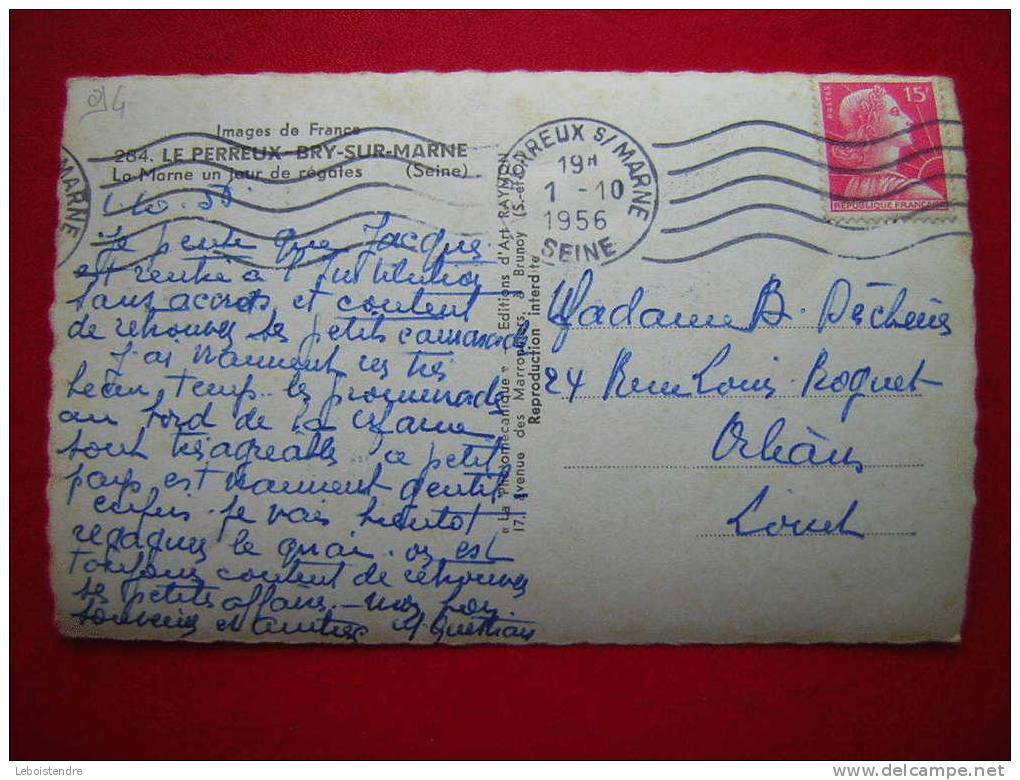 94
Images de France
284. LE PERREUX-BRY-SUR-MARNE
La Marne un jour de régates (Seine)
MARNE
PERREUX S/MARNE
19H
1 -10
1956
SEINE
POSTES
15F
REPUBLIQUE FRANCAISE
« La Photomécanique » Editions d'Art RAYMON
17, avenue des Marronniers, à Brunoy (S.-et-O.)
Reproduction interdite
Je pense que Jacques
est rentré à l'Institution
sans accrocs et content
de retrouver ses petits camarades
J'ai vraiment eu très
beau temps les promenades
au bord de la Marne
sont très agréables ce petit
pays est vraiment gentil
enfin je vais bientôt
regagner le quai. on est
toujours content de retrouver
ses petites affaires. - mes bons
souvenirs et amitiés
Madame B.
24 Rue Louis Roguet
Orléans
Loiret
Leboistendre
delcampe.net